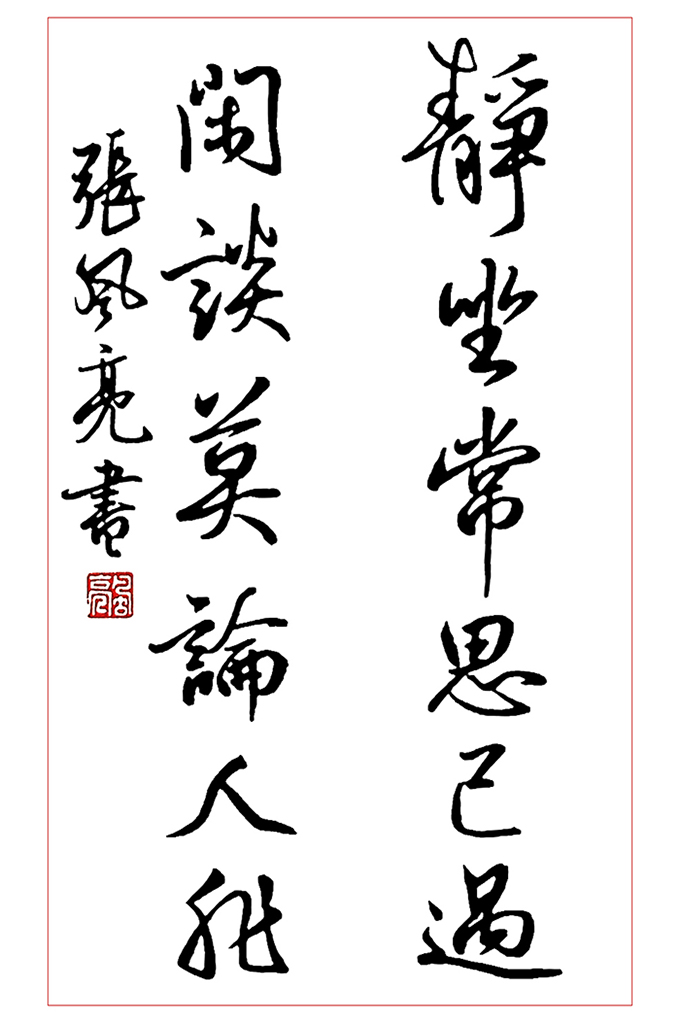 靜坐常思己過
閑談莫論人非
張風亮書